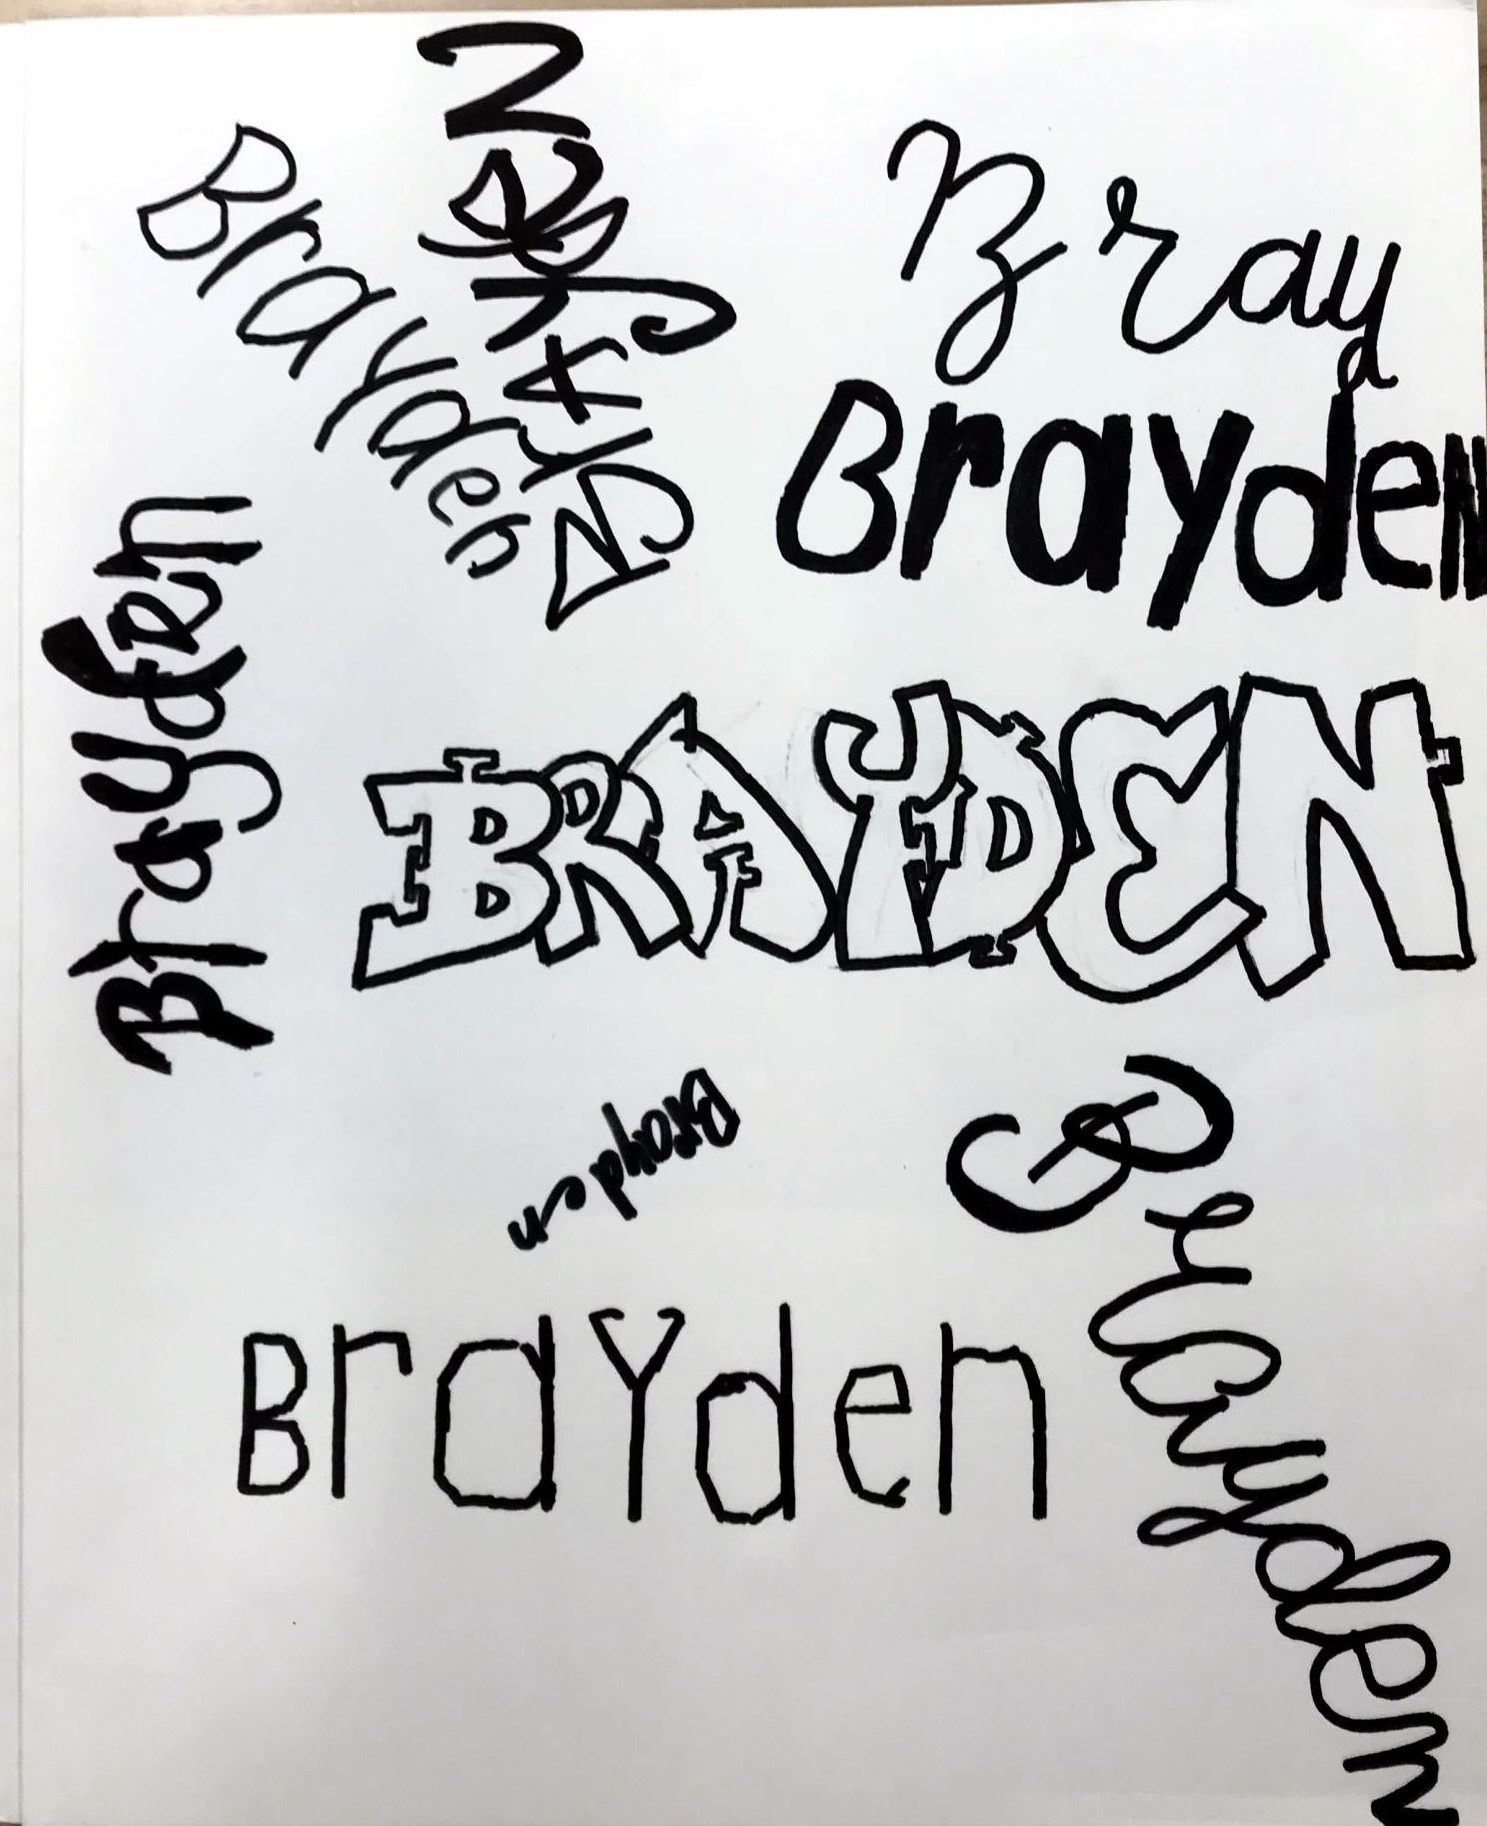 Brayden
BrAydeN
Bray
BraydeN
Brayden
BRAYDEN
Brayden
BraYden
Brayden